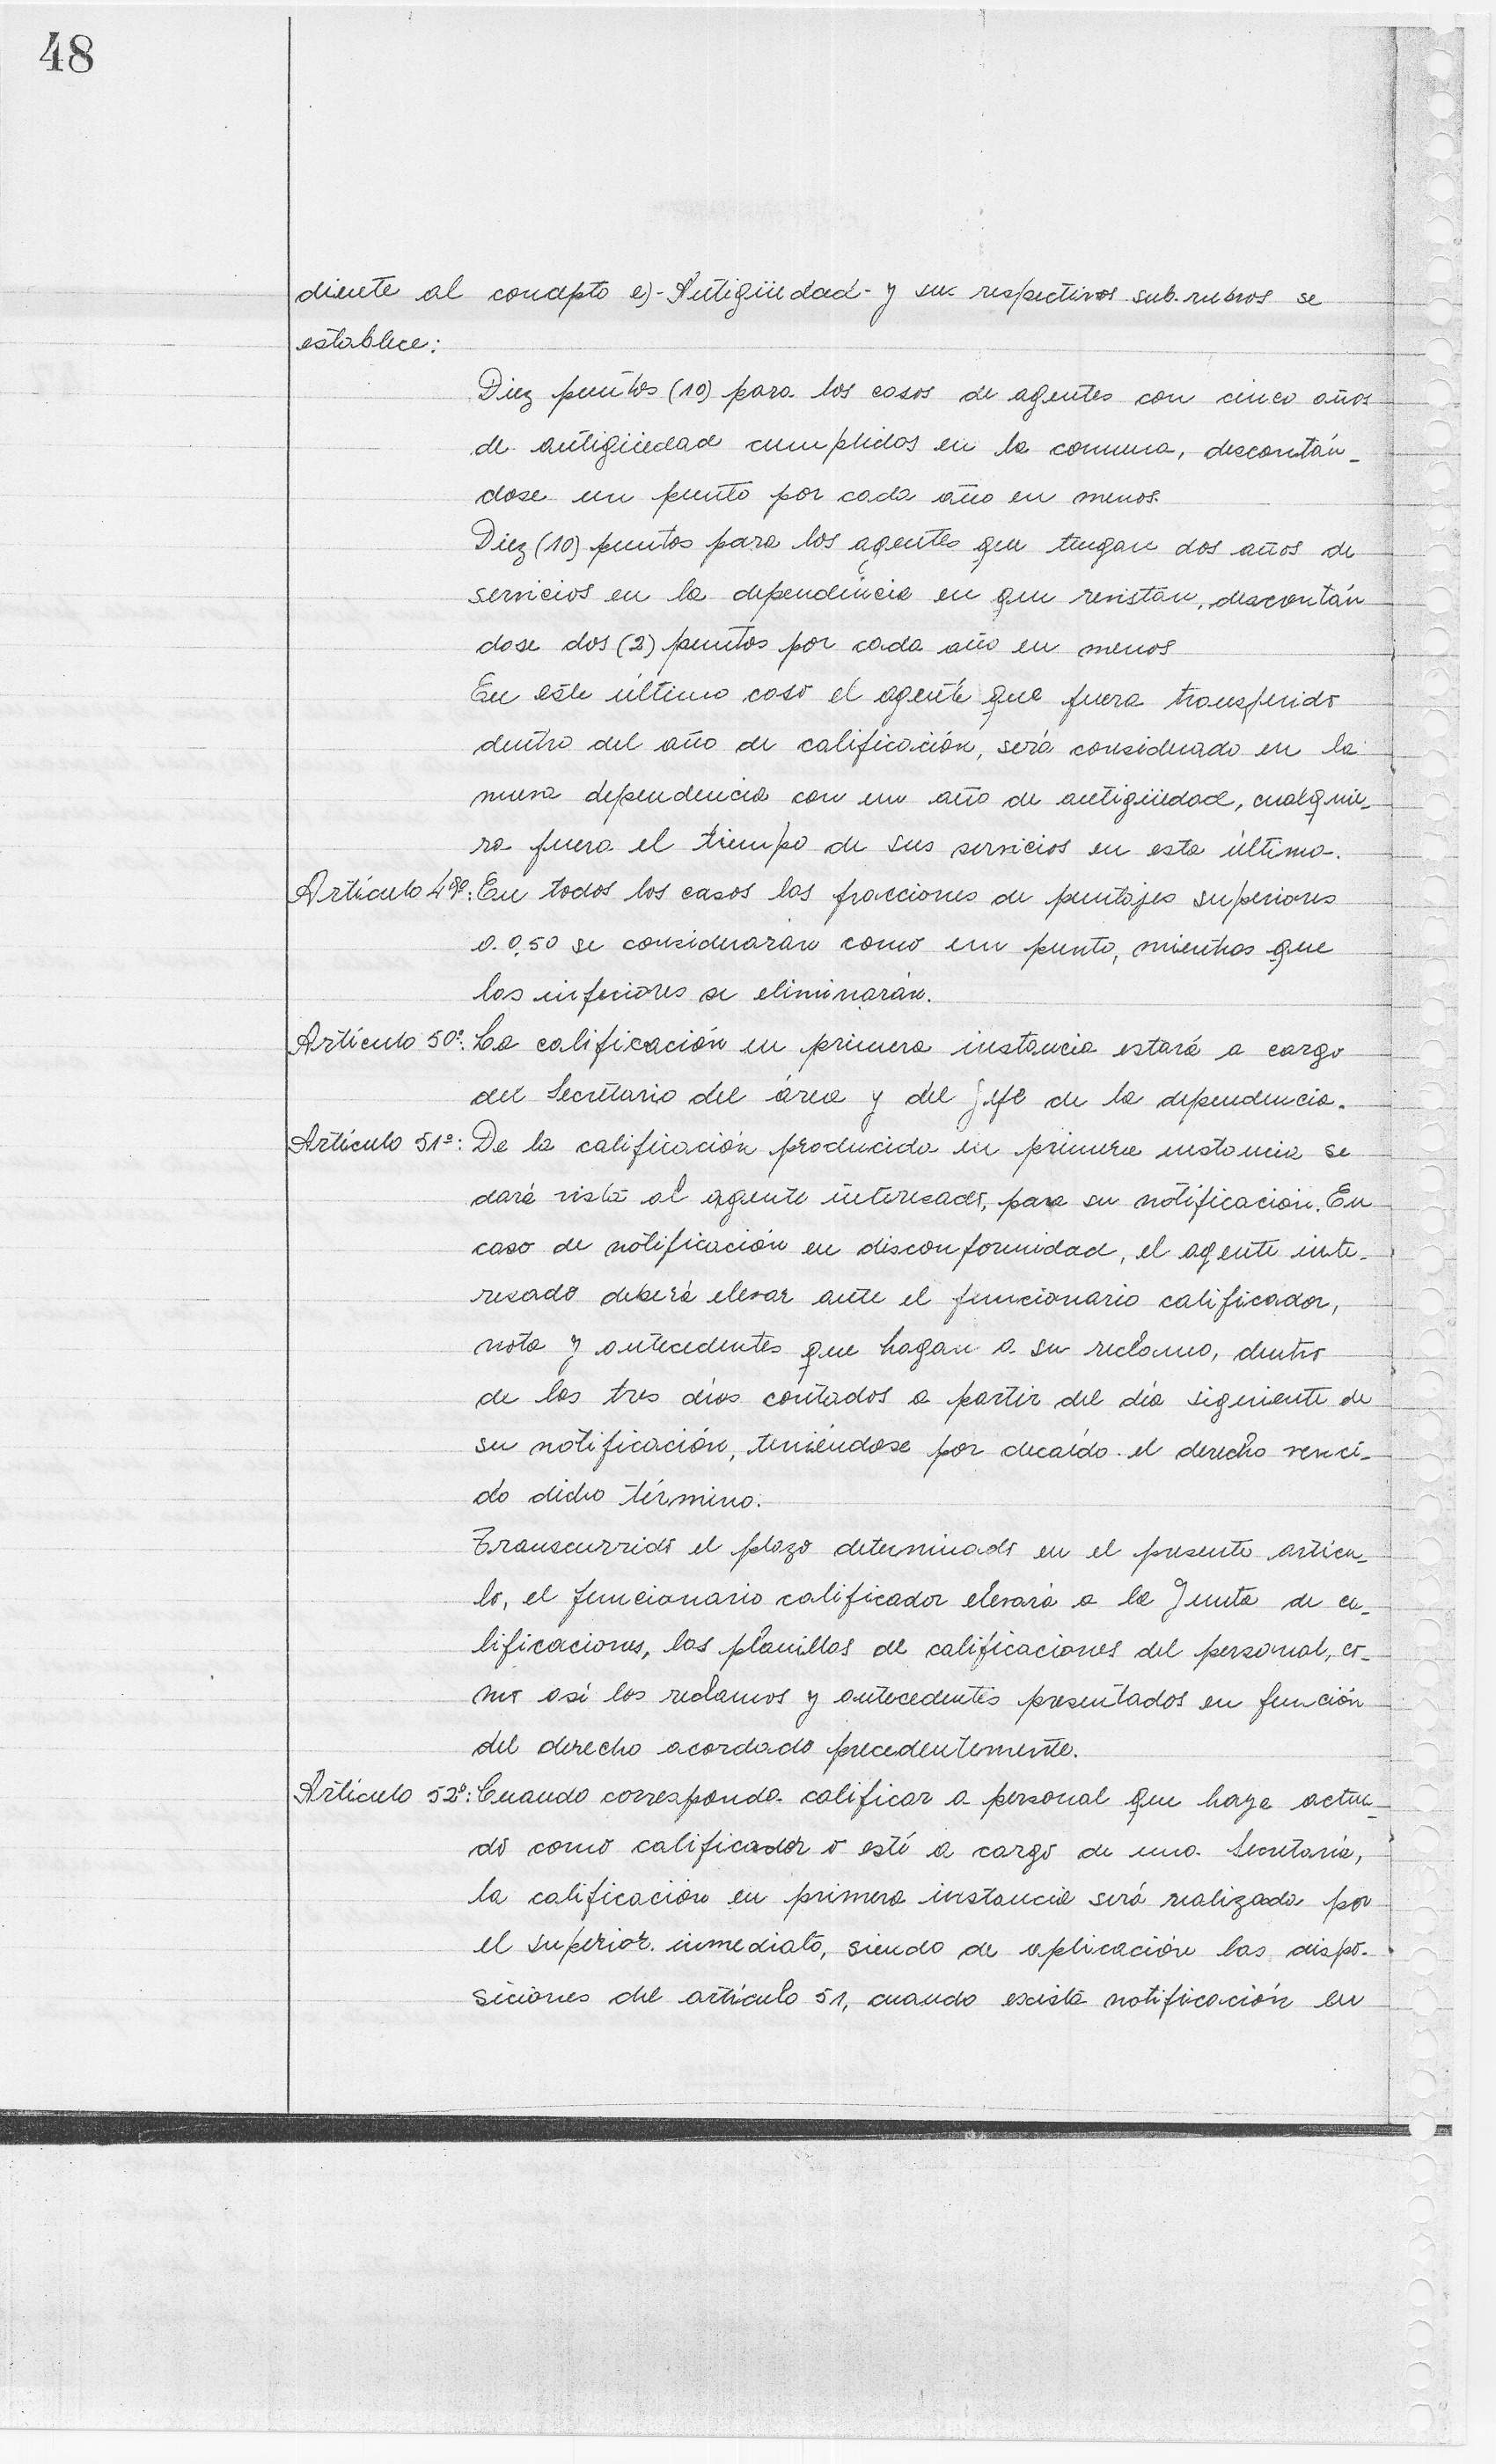 48
diente al concepto e)- Antigüedad- y sus respectivos sub-rubros se
establece:
Diez puntos (10) para los casos de agentes con cinco años
de antigüedad cumplidos en la comuna, descontán-
dose un punto por cada año en menos.
Diez (10) puntos para los agentes que tengan dos años de
servicios en la dependencia en que revistan, descontán
dose dos (2) puntos por cada año en menos
En este último caso el agente que fuera transferido
dentro del año de calificación, será considerado en la
nueva dependencia con un año de antigüedad, cualquie-
ra fuera el tiempo de sus servicios en esta última.
Artículo 49º: En todos los casos las fracciones de puntajes superiores
a 0,50 se considerarán como un punto, mientras que
las inferiores se eliminarán.
Artículo 50º: La calificación en primera instancia estará a cargo
del Secretario del área y del Jefe de la dependencia.
Artículo 51º: De la calificación producida en primera instancia se
dará vista al agente interesado, para su notificación. En
caso de notificación en disconformidad, el agente inte-
resado deberá elevar ante el funcionario calificador,
nota y antecedentes que hagan a su reclamo, dentro
de los tres días contados a partir del día siguiente de
su notificación, teniéndose por decaído el derecho venci-
do dicho término.
Transcurrido el plazo determinado en el presente artícu-
lo, el funcionario calificador elevará a la Junta de ca-
lificaciones, las planillas de calificaciones del personal, co-
mo así los reclamos y antecedentes presentados en función
del derecho acordado precedentemente.
Artículo 52º: Cuando corresponda calificar a personal que haya actua-
do como calificador o esté a cargo de una Secretaría,
la calificación en primera instancia será realizada por
el superior inmediato, siendo de aplicación las dispo-
siciones del artículo 51, cuando exista notificación en